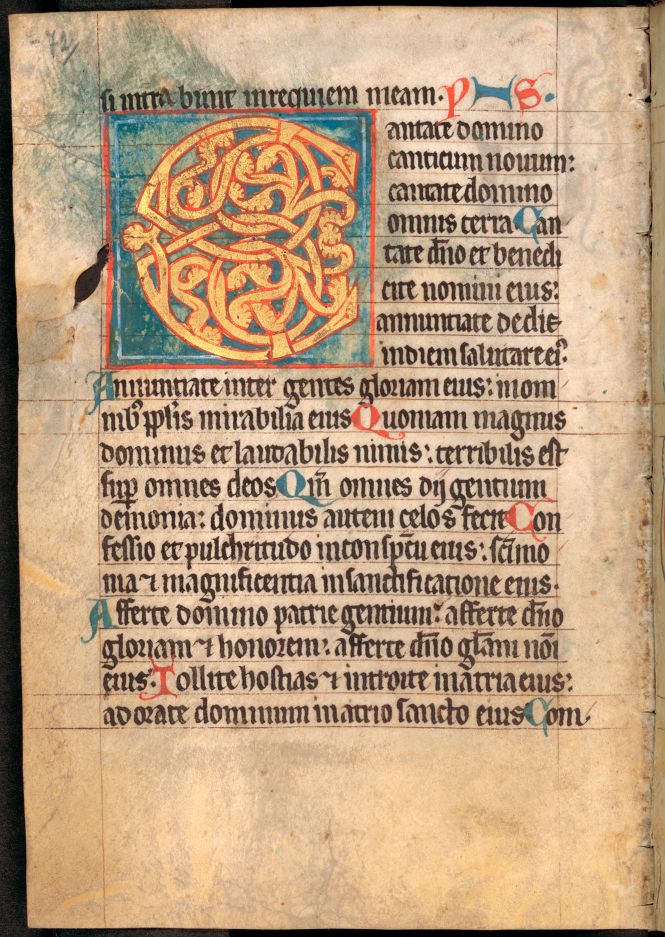 72
si intrabunt in requiem meam. PS.
Cantate domino
canticum nouum:
cantate domino
omnis terra Can
tate dño et benedi
cite nomini eius:
annuntiate de die
in diem salutare ei᾽
Annuntiate inter gentes gloriam eius: in om
nib᾽ pplis mirabilia eius Quoniam magnus
dominus et laudabilis nimis: terribilis est
sup omnes deos Qm̃ omnes dij gentium
demonia: dominus autem celos fecit Con
fessio et pulchritudo in conspc̃tu eius: sc̃imo
nia ⁊ magnificentia in sanctificatione eius.
Afferte domino patrie gentium: afferte dño
gloriam ⁊ honorem: afferte dño glãm nõi
eius: Tollite hostias ⁊ introite in atria eius:
adorate dominum in atrio sancto eius Com